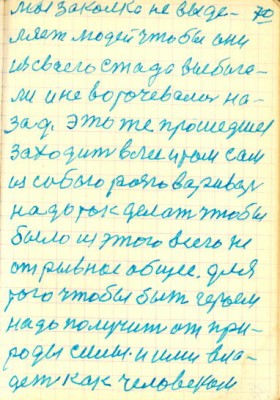 моя закалка не выде- 70
ляет людей чтобы они
из своего стада выбега-
ли и не ворочевались на-
зад. Это же прошедшее
заходит
из собою разговаривал
надо так делат чтобы
было из этого всего не
отрывное общее. для
того чтобы быт героем
надо получит от при-
роды силы. и ими вла-
дет как человеком